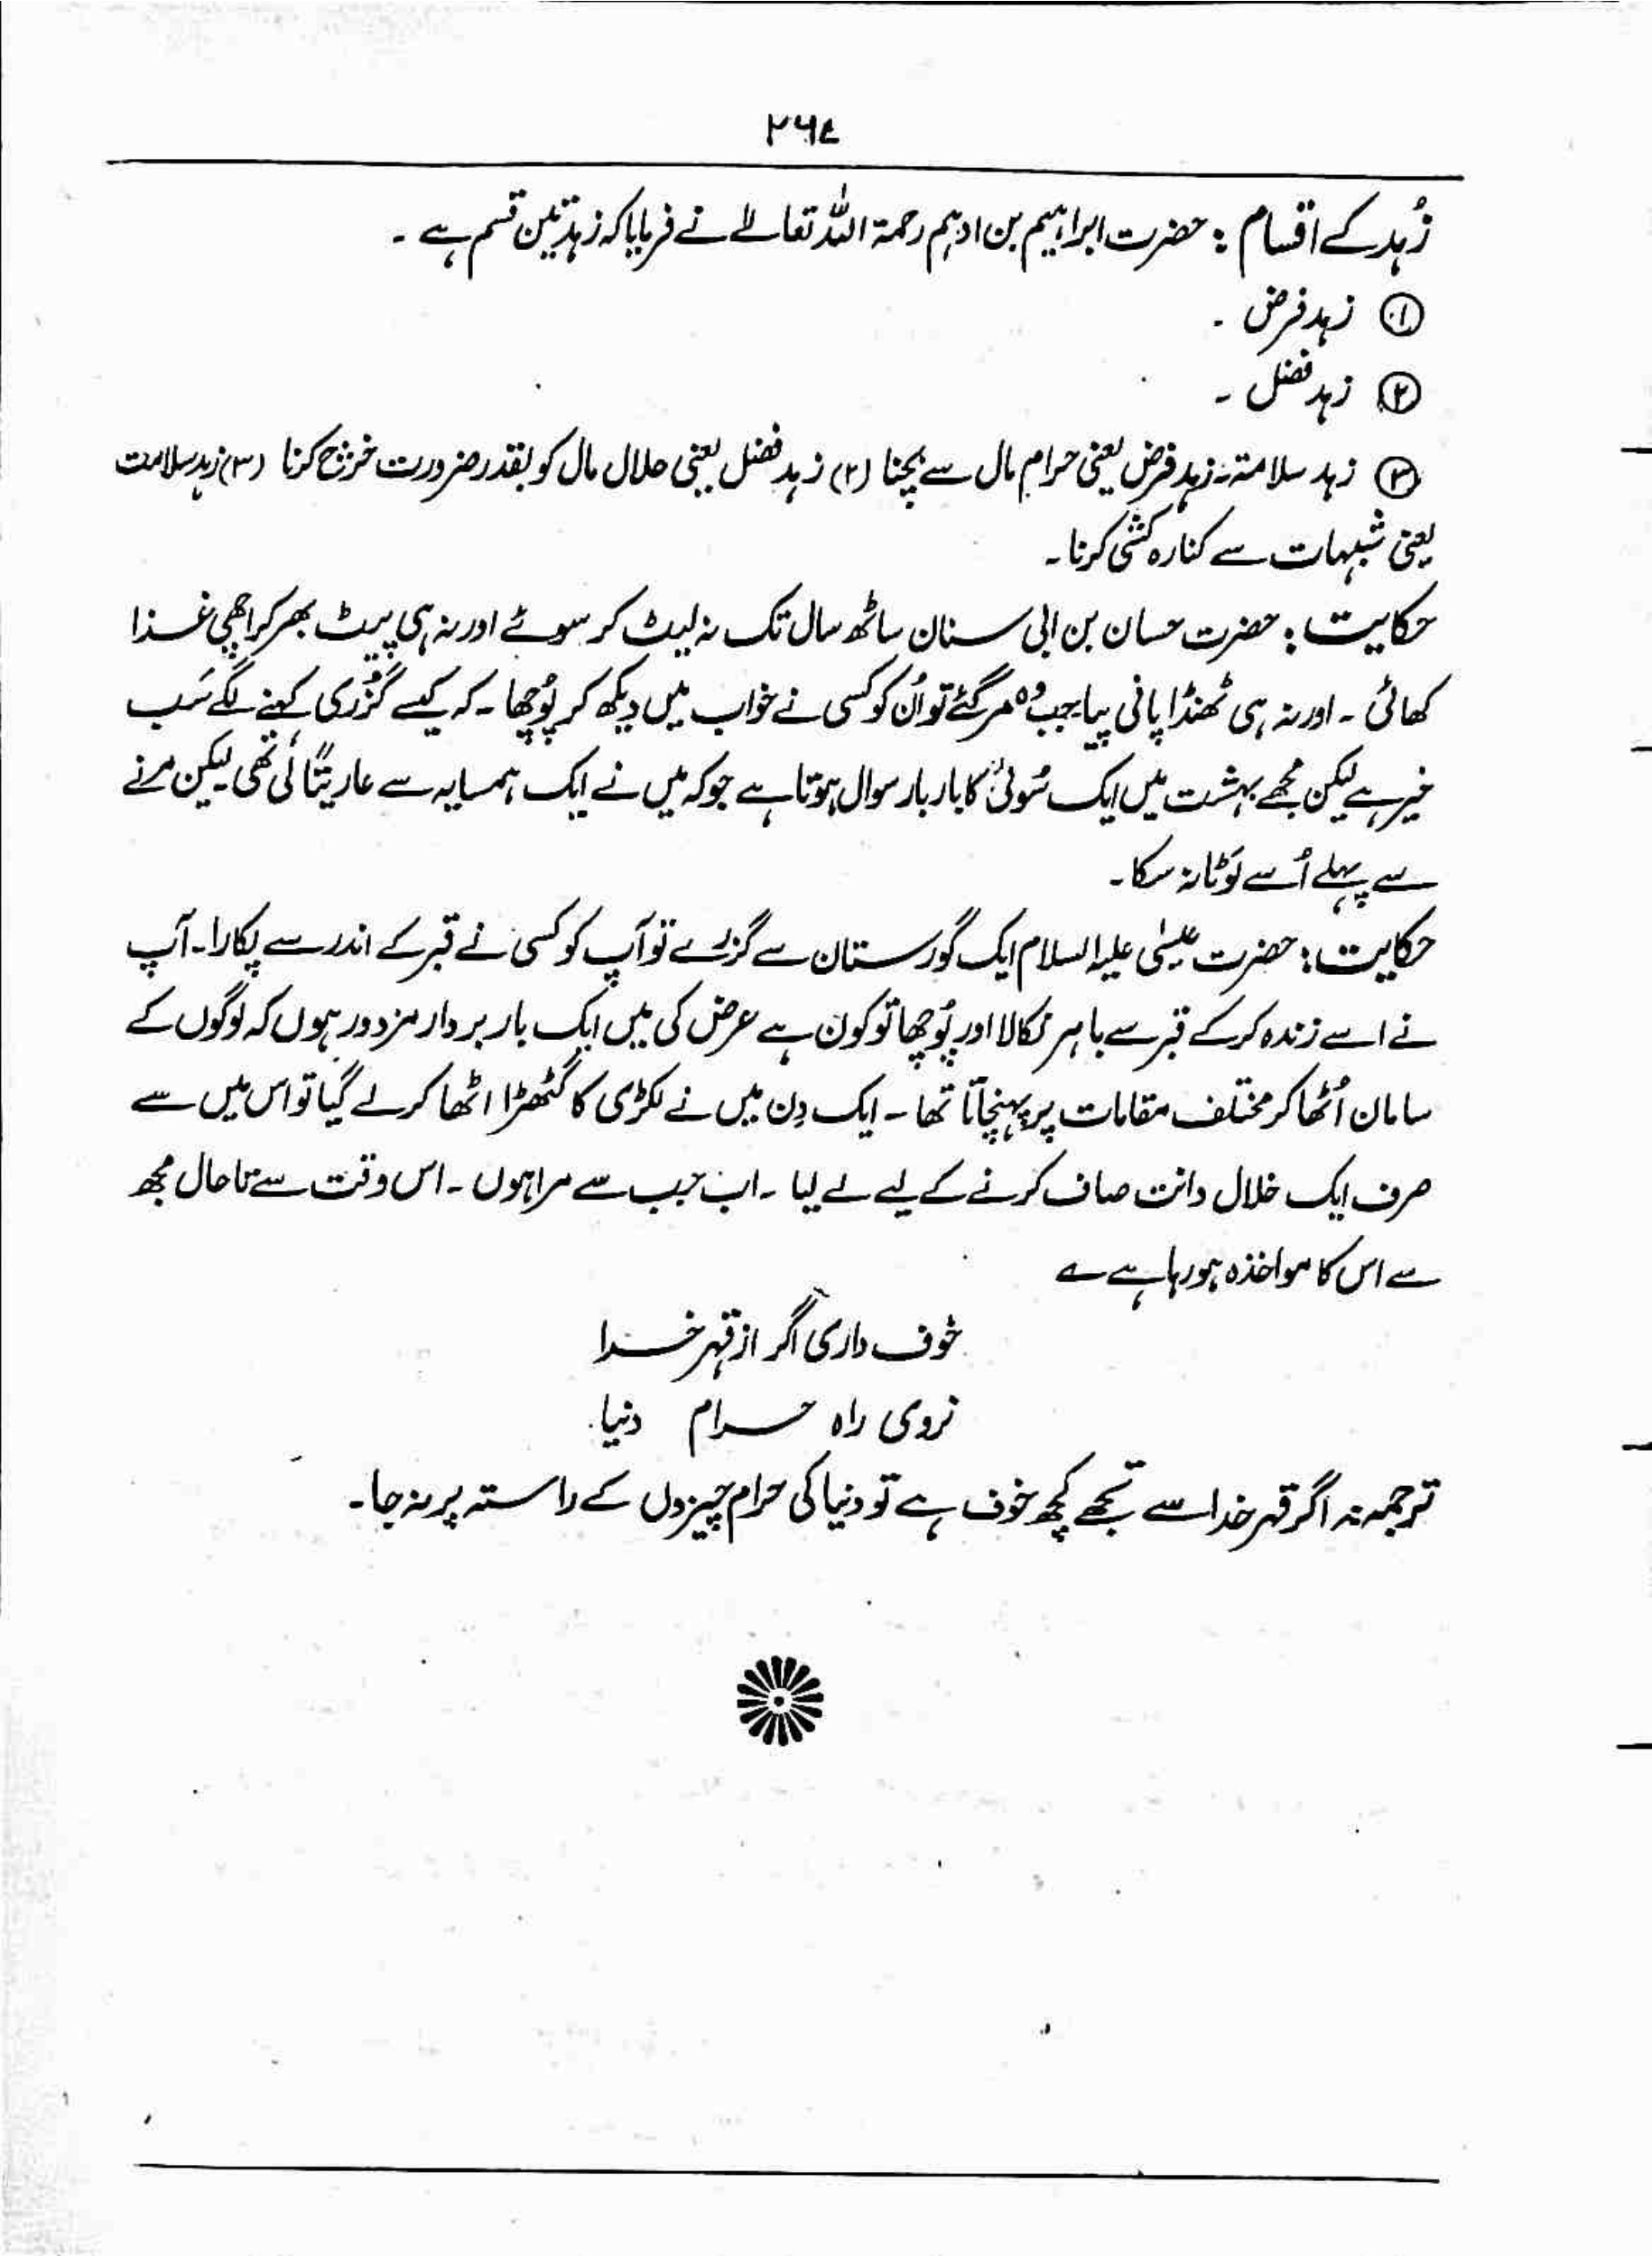 ۲۶۷
زُہد کے اقسام : حضرت ابراہیم بن ادہم رحمۃ اللہ تعالےٰ نے فرمایا کہ زہد تین قسم ہے ۔
① زہد فرض ۔
② زہد فضل ۔
③ زہد سلامتہ ۔ زہد فرض یعنی حرام مال سے بچنا (۲) زہد فضل یعنی حلال مال کو بقدر ضرورت خرچ کرنا (۳) زہد سلامت
یعنی شبہات سے کنارہ کشی کرنا ۔
حکایت : حضرت حسان بن ابی سنان ساٹھ سال تک نہ لیٹ کر سوئے اور نہ ہی پیٹ بھر کر اچھی غذا
کھائی ۔ اور نہ ہی ٹھنڈا پانی پیا جب وہ مر گئے تو اُن کو کسی نے خواب میں دیکھ کر پُوچھا ۔ کہ کیسے گُزری کہنے لگے سَب
خیر ہے لیکن مجھے بہشت میں ایک سُوئی کا بار بار سوال ہوتا ہے جو کہ میں نے ایک ہمسایہ سے عاریتًا لی تھی لیکن مرنے
سے پہلے اُسے لَوٹا نہ سکا ۔
حکایت : حضرت عیسٰی علیہ السلام ایک گورستان سے گزرے تو آپ کو کسی نے قبر کے اندر سے پکارا ۔ آپ
نے اسے زندہ کر کے قبر سے باہر نکالا اور پُوچھا تو کون ہے عرض کی میں ایک بار بردار مزدور ہوں کہ لوگوں کے
سامان اُٹھا کر مختلف مقامات پر پہنچاتا تھا ۔ ایک دِن میں نے لکڑی کا گٹھڑا اٹھا کر لے گیا تو اس میں سے
صرف ایک خلال دانت صاف کرنے کے لیے لے لیا ۔ اب جب سے مرا ہوں ۔ اس وقت سے تا حال مجھ
سے اس کا مواخذہ ہو رہا ہے ؎
خوف داری اگر از قہر خدا
نروی راہ حرام دنیا
ترجمہ : اگر قہر خدا سے تجھے کچھ خوف ہے تو دنیا کی حرام چیزوں کے راستہ پر نہ جا ۔